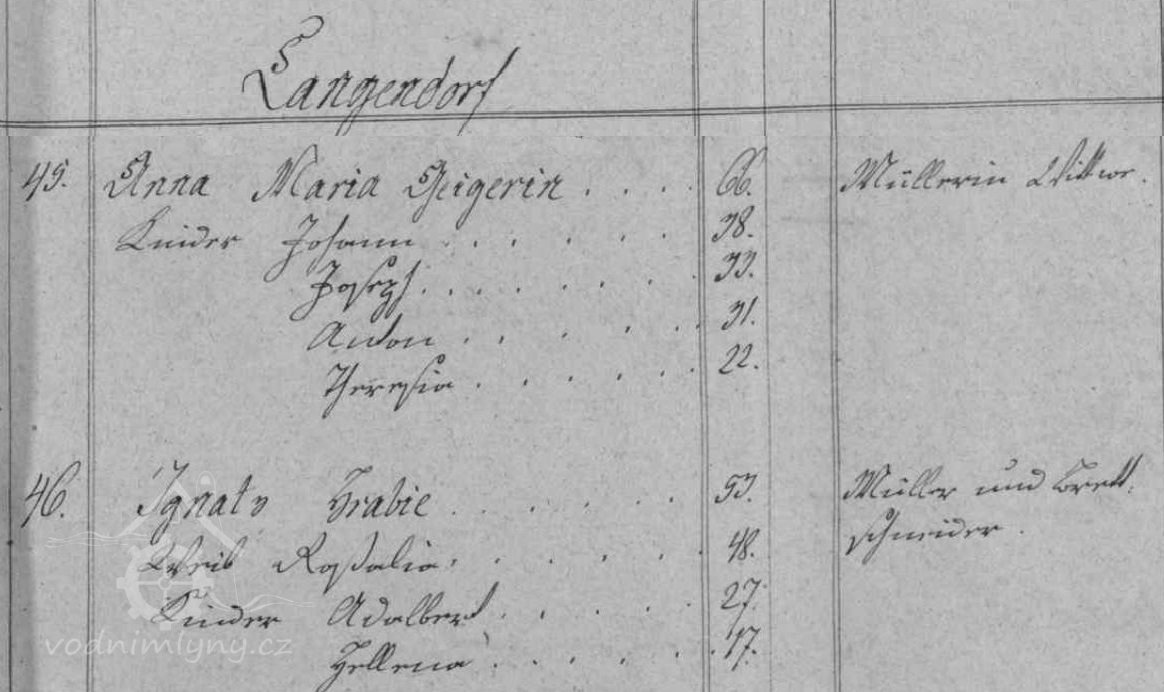 Langendorf
45. Anna Maria Geigerin . . . . 66. Müllerin Wittwe.
Kinder Johann . . . . . . 38.
Joseph . . . . . . . 33.
Anton . . . . . 31.
Theresia . . . . . . 22.
46. Ignatz Hrabie . . . . . . 53. Müller und Brett-
Weib Rosalia . . . . . . 48. schneider.
Kinder Adalbert . . . . . 27.
Hellena . . . . . . 17.
vodnimlyny.cz